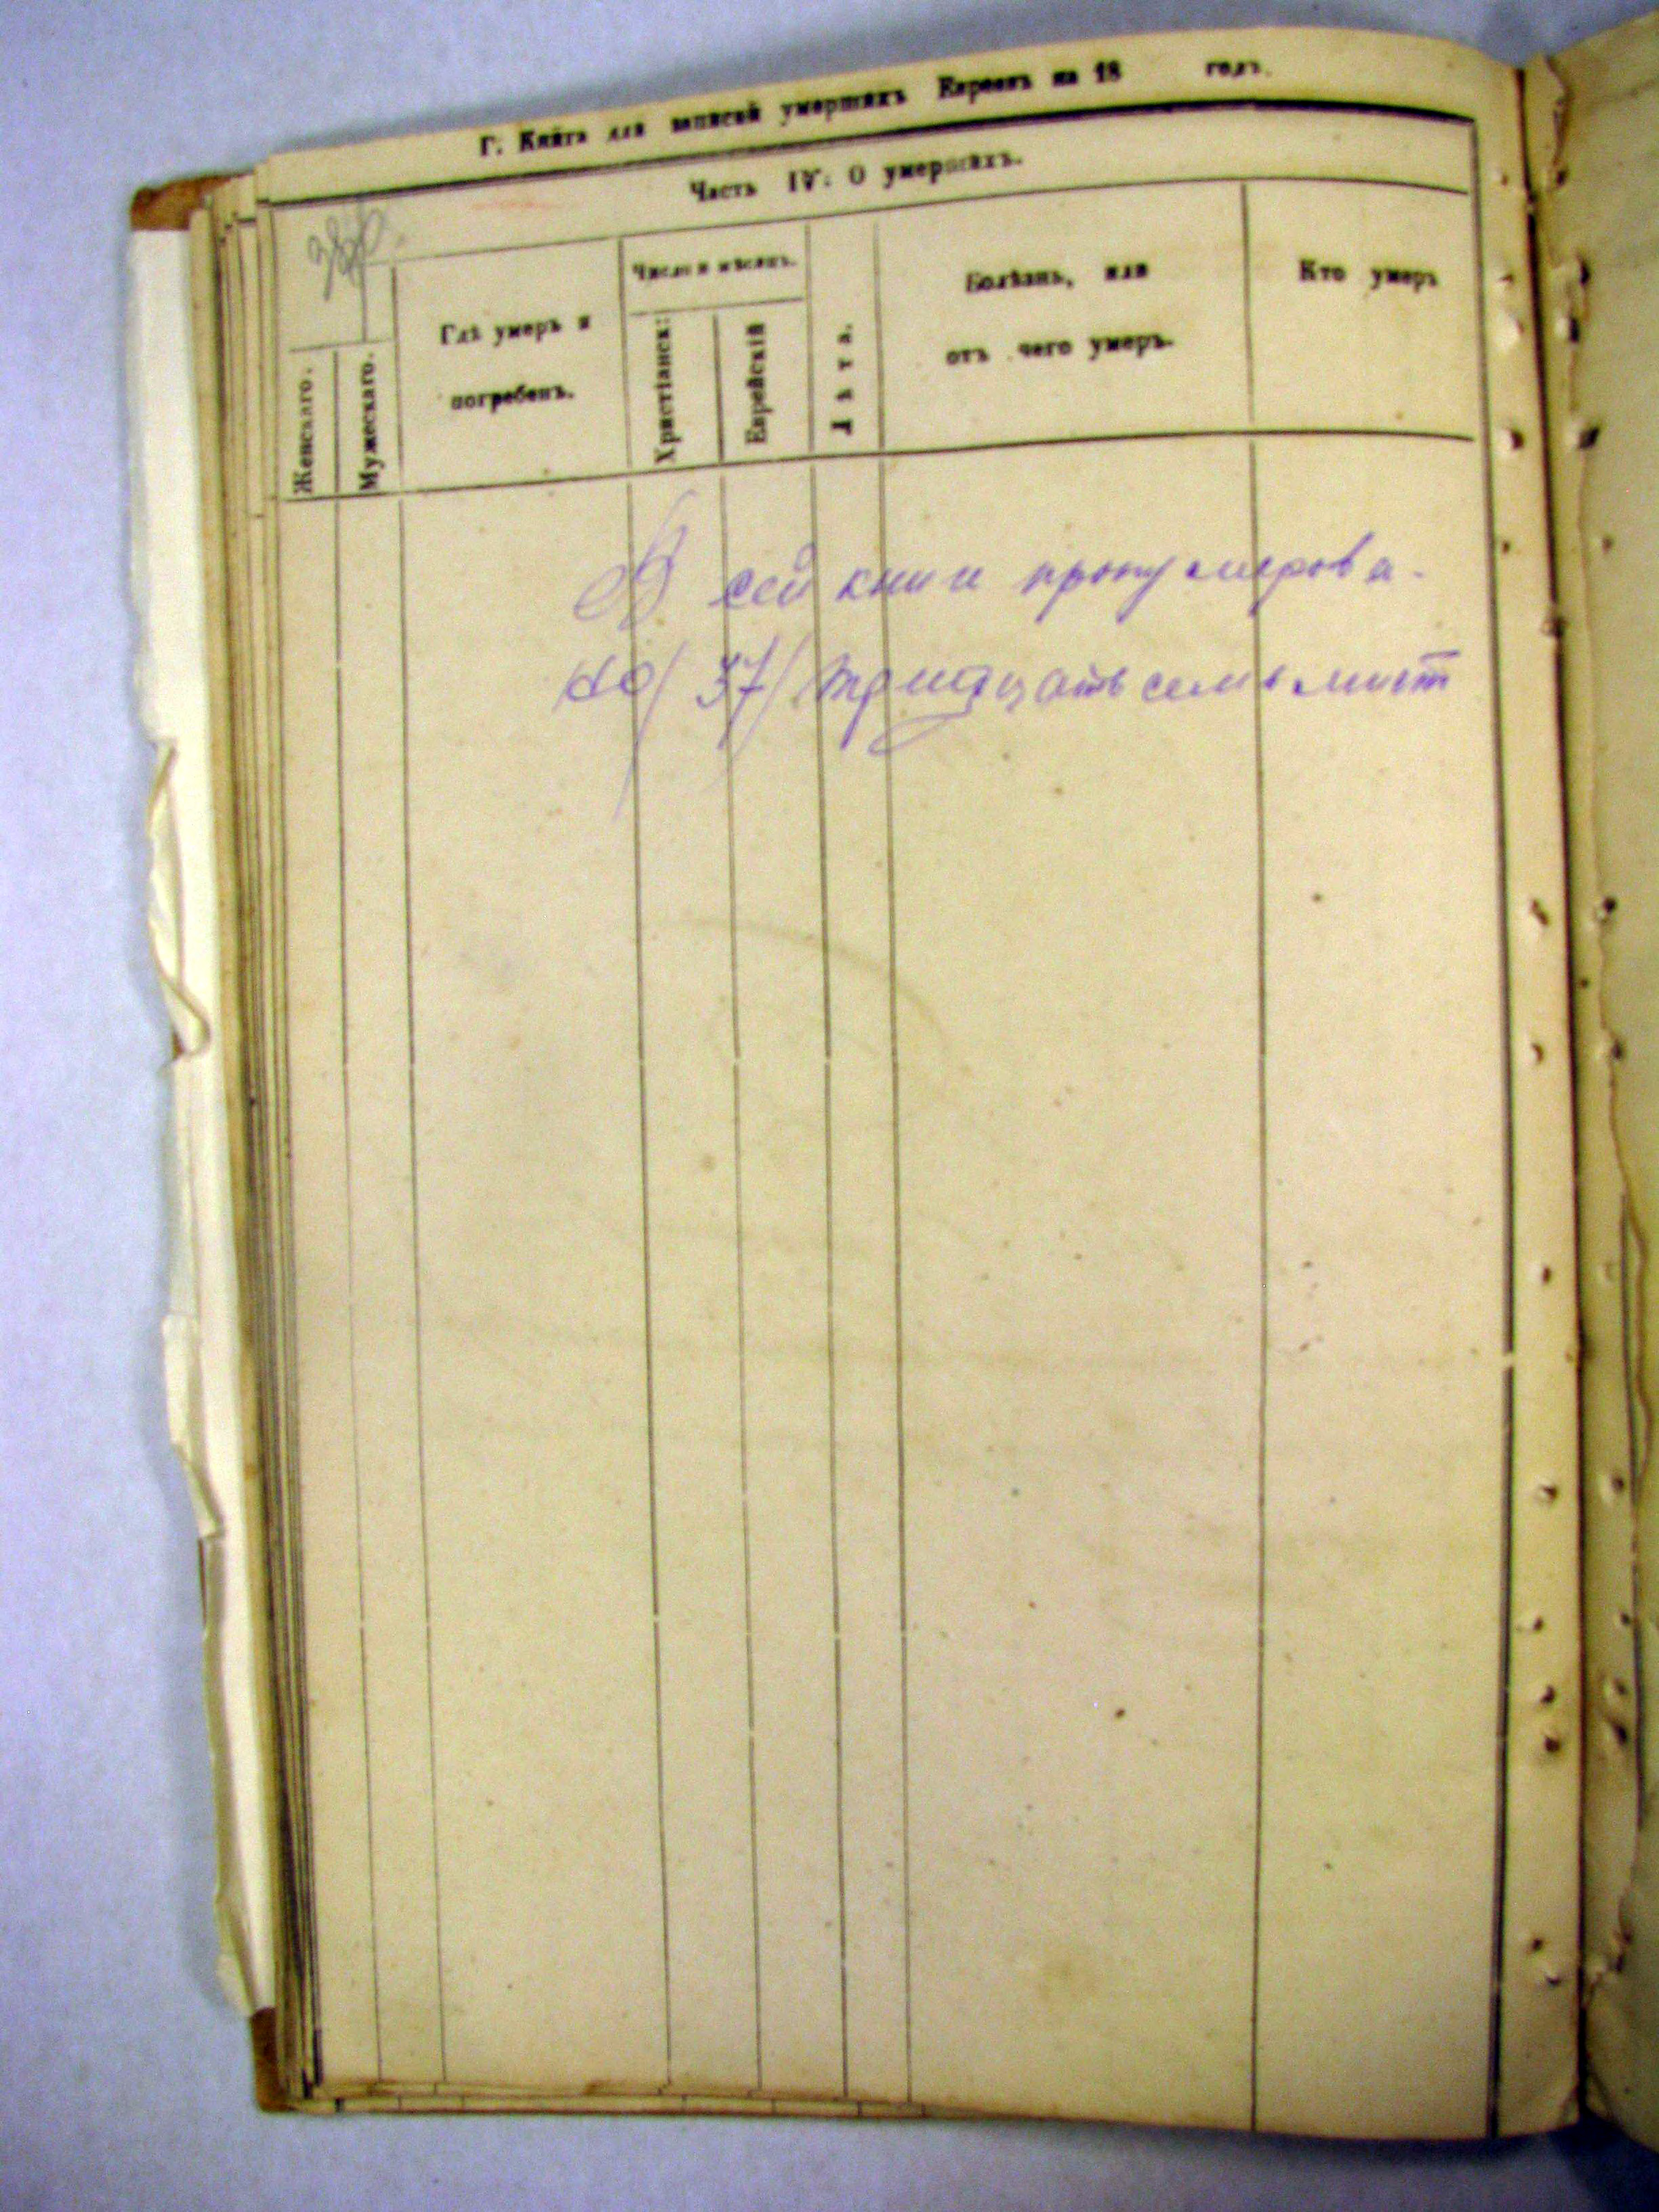 Г. Книга для записей умершихъ Евреевъ на 18 годъ.
Часть IV. О умершихъ.
Женскаго.
Мужескаго.
Гдѣ умеръ и
погребенъ.
Число и мѣсяцъ.
Христіанск:
Еврейскій
Лѣта.
Болѣзнь, или
отъ чего умеръ.
Кто умеръ
В сей книи пронумерова-
но / 37/ тридцать семь лист